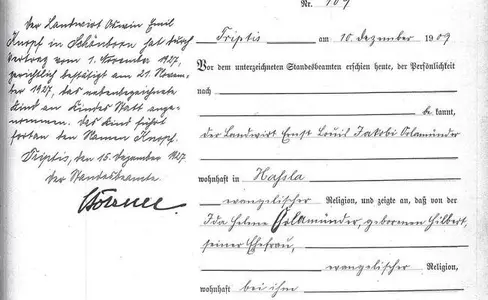 Nr. 109
Der Landwirt Oswin Emil
Knopf in Schönborn hat durch
Vertrag vom 1. November 1927,
gerichtlich bestätigt am 21. Novem-
ber 1927, das nebenbezeichnete
Kind an Kindes Statt ange-
nommen. Das Kind führt
fortan den Namen Knopf.
Triptis, den 15. Dezember 1927.
Der Standesbeamte.
Triptis am 10. Dezember 1909
Vor dem unterzeichneten Standesbeamten erschien heute, der Persönlichkeit
nach
be kannt,
der Landwirt Ernst Louis Jakobi Orlamünder
wohnhaft in Hasla
evangelischer Religion, und zeigte an, daß von der
Ida Helene Orlamünder, geborenen Hilbert,
seiner Ehefrau,
evangelischer Religion,
wohnhaft bei ihm